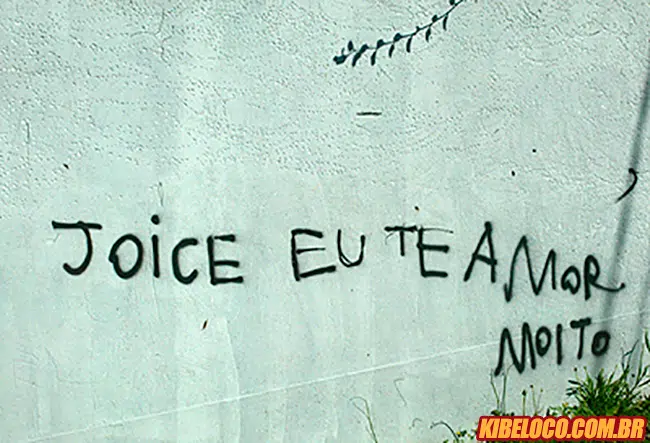 JOiCE EU TE AMOR
MOITO
KIBELOCO.COM.BR